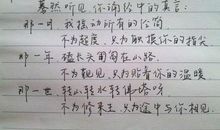 蓦然听见你诵经中的真言:
那一月 我摇动所有的经筒
不为超度,只为触摸你的指尖
那一年 磕长头匍匐在山路
不为觐见,只为贴着你的温暖
那一世 转山转水转佛塔呀
不为修来生,只为途中与你相见